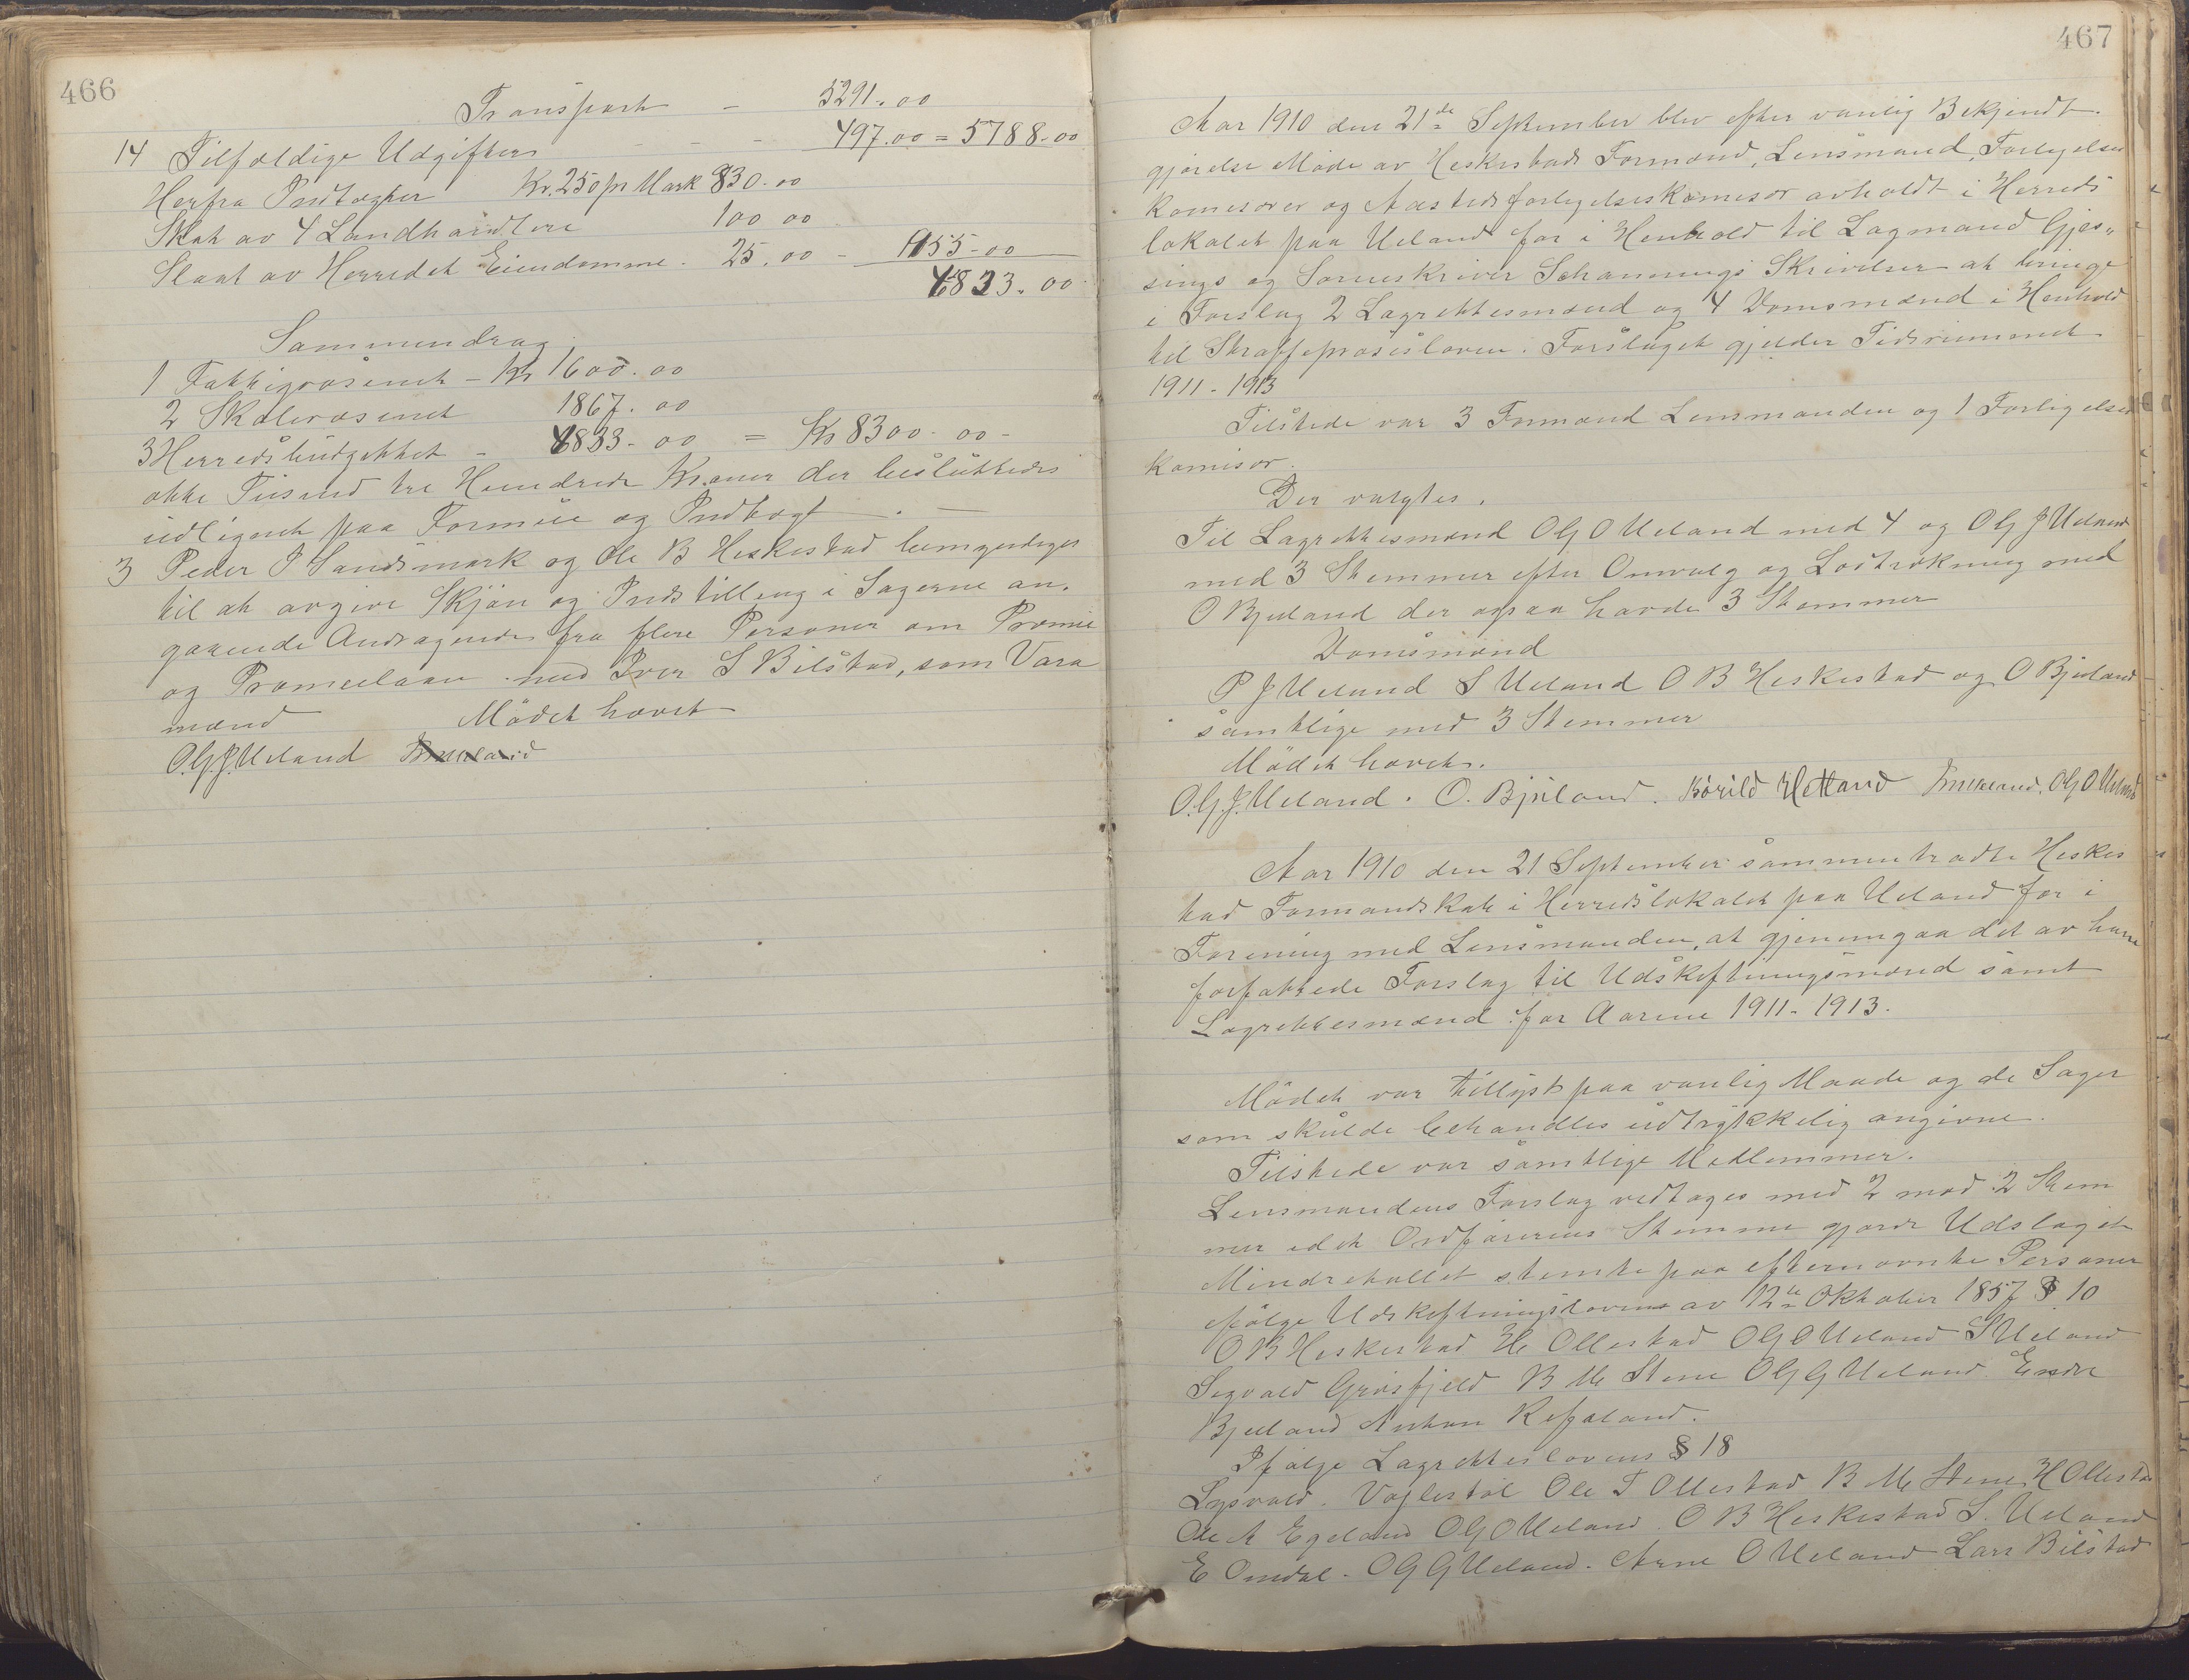 466
Transport - 5291.00
14 Tilfældige Udgifter - - - 497.00 = 5788.00
Herfra Indtægter Kr. 250 pr Mark 830.00
Skat av 4 Landhandlere 100 00
Skat av Herredet Eiendomme. 25.00 - 955-00
4833.00
Sammendrag
1 Fattigvæsenet - Kr 1600.00
2 Skolevæsenet 1867.00
3 Herredsbudgettet - 4833-00 = Kr 8300-00-
otte Tusind tre Hundrede Kroner der besluttedes
udlignet paa Formue og Indtægt. -
3 Peder J Sandsmark og Ole B Heskestad bemyndiges
til at avgive Skjøn og Indstilling i Sagerne an.
gaaende Andragender fra flere Personer om Præmie
og Præmielaan med Iver S Bilstad, som Vara
mænd Mødet hævet
O.G.J. Ueland
467
Aar 1910 den 21de September blev efter vanlig Bekjendt-
gjørelse Møde av Heskestads Formænd, Lensmand, Forligelses
komisærer og Aastedsforligelseskomisær avholdt i Herreds
lokalet paa Ueland for i Henhold til Lagmand Gjes„
sings og Sorenskriver Schannings Skrivelser at bringe
i Forslag 2 Lagrettesmænd og 4 Domsmænd i Henhold
til Straffeprosesloven. Forslaget gjelder Tidsrummet
1911-1913
Tilstede var 3 Formænd Lensmanden og 1 Forligelses
komisær.
Der valgtes.
Til Lagrettesmænd OG O Ueland med 4 og OG J Ueland
med 3 Stemmer efter Omvalg og Lodtrækning med
O Bjuland der ogsaa havde 3 Stemmer
Domsmænd
P J Ueland S Ueland O B Heskestad og O Bjuland
samtlige med 3 Stemmer
Mødet hævet.
O.G.J. Ueland. O. Bjuland. Børild Hetland OG O Ueland
Aar 1910 den 21 September sammentraadte Heskes
tad Formandskab i Herredslokalet paa Ueland for i
Forening med Lensmanden, at gjenemgaa det av ham
forfattede Forslag til Udskiftningsmænd samt
Lagrettesmænd for Aarene 1911-1913.
Mødet var tillyst paa vanlig Maade og de Sager
som skulde behandles udtrykkelig angivne.
Tilstede var samtlige Medlemmer.
Lensmandens Forslag vedtages med 2 mod 2 Stem
mer idet Ordførerens Stemme gjorde Udslaget
Mindretallet stemte paa efternævnte Personer
ifølge Udskiftningsloven av 12te Oktober 1857 § 10
O B Heskestad H Ollestad OG O Ueland S Ueland
Sigvald Grøsfjeld B M Stene OG G Ueland Endre
Bjuland Anton Refsland.
Ifølge Lagrettelovens § 18
Sigvald Vaglestøl Ole T Ollestad B M Stene H Ollestad
Ole A Egeland OG O Ueland O B Heskestad S. Ueland
E Omdal. OG G Ueland. Arne O Ueland Lars Bilstad